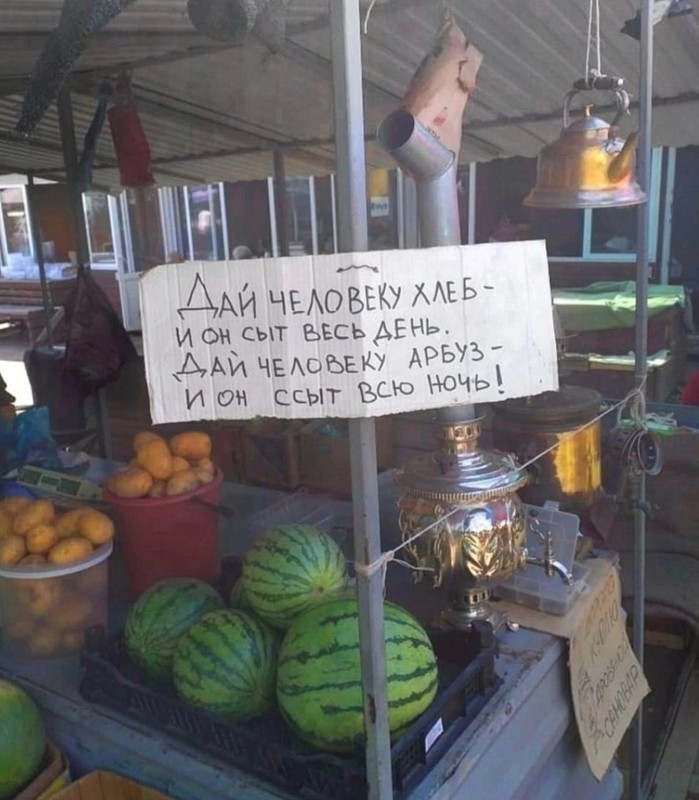 ДАЙ ЧЕЛОВЕКУ ХЛЕБ-
И ОН СЫТ ВЕСЬ ДЕНЬ.
ДАЙ ЧЕЛОВЕКУ АРБУЗ-
И ОН ССЫТ ВСЮ НОЧЬ!
САМОВАР